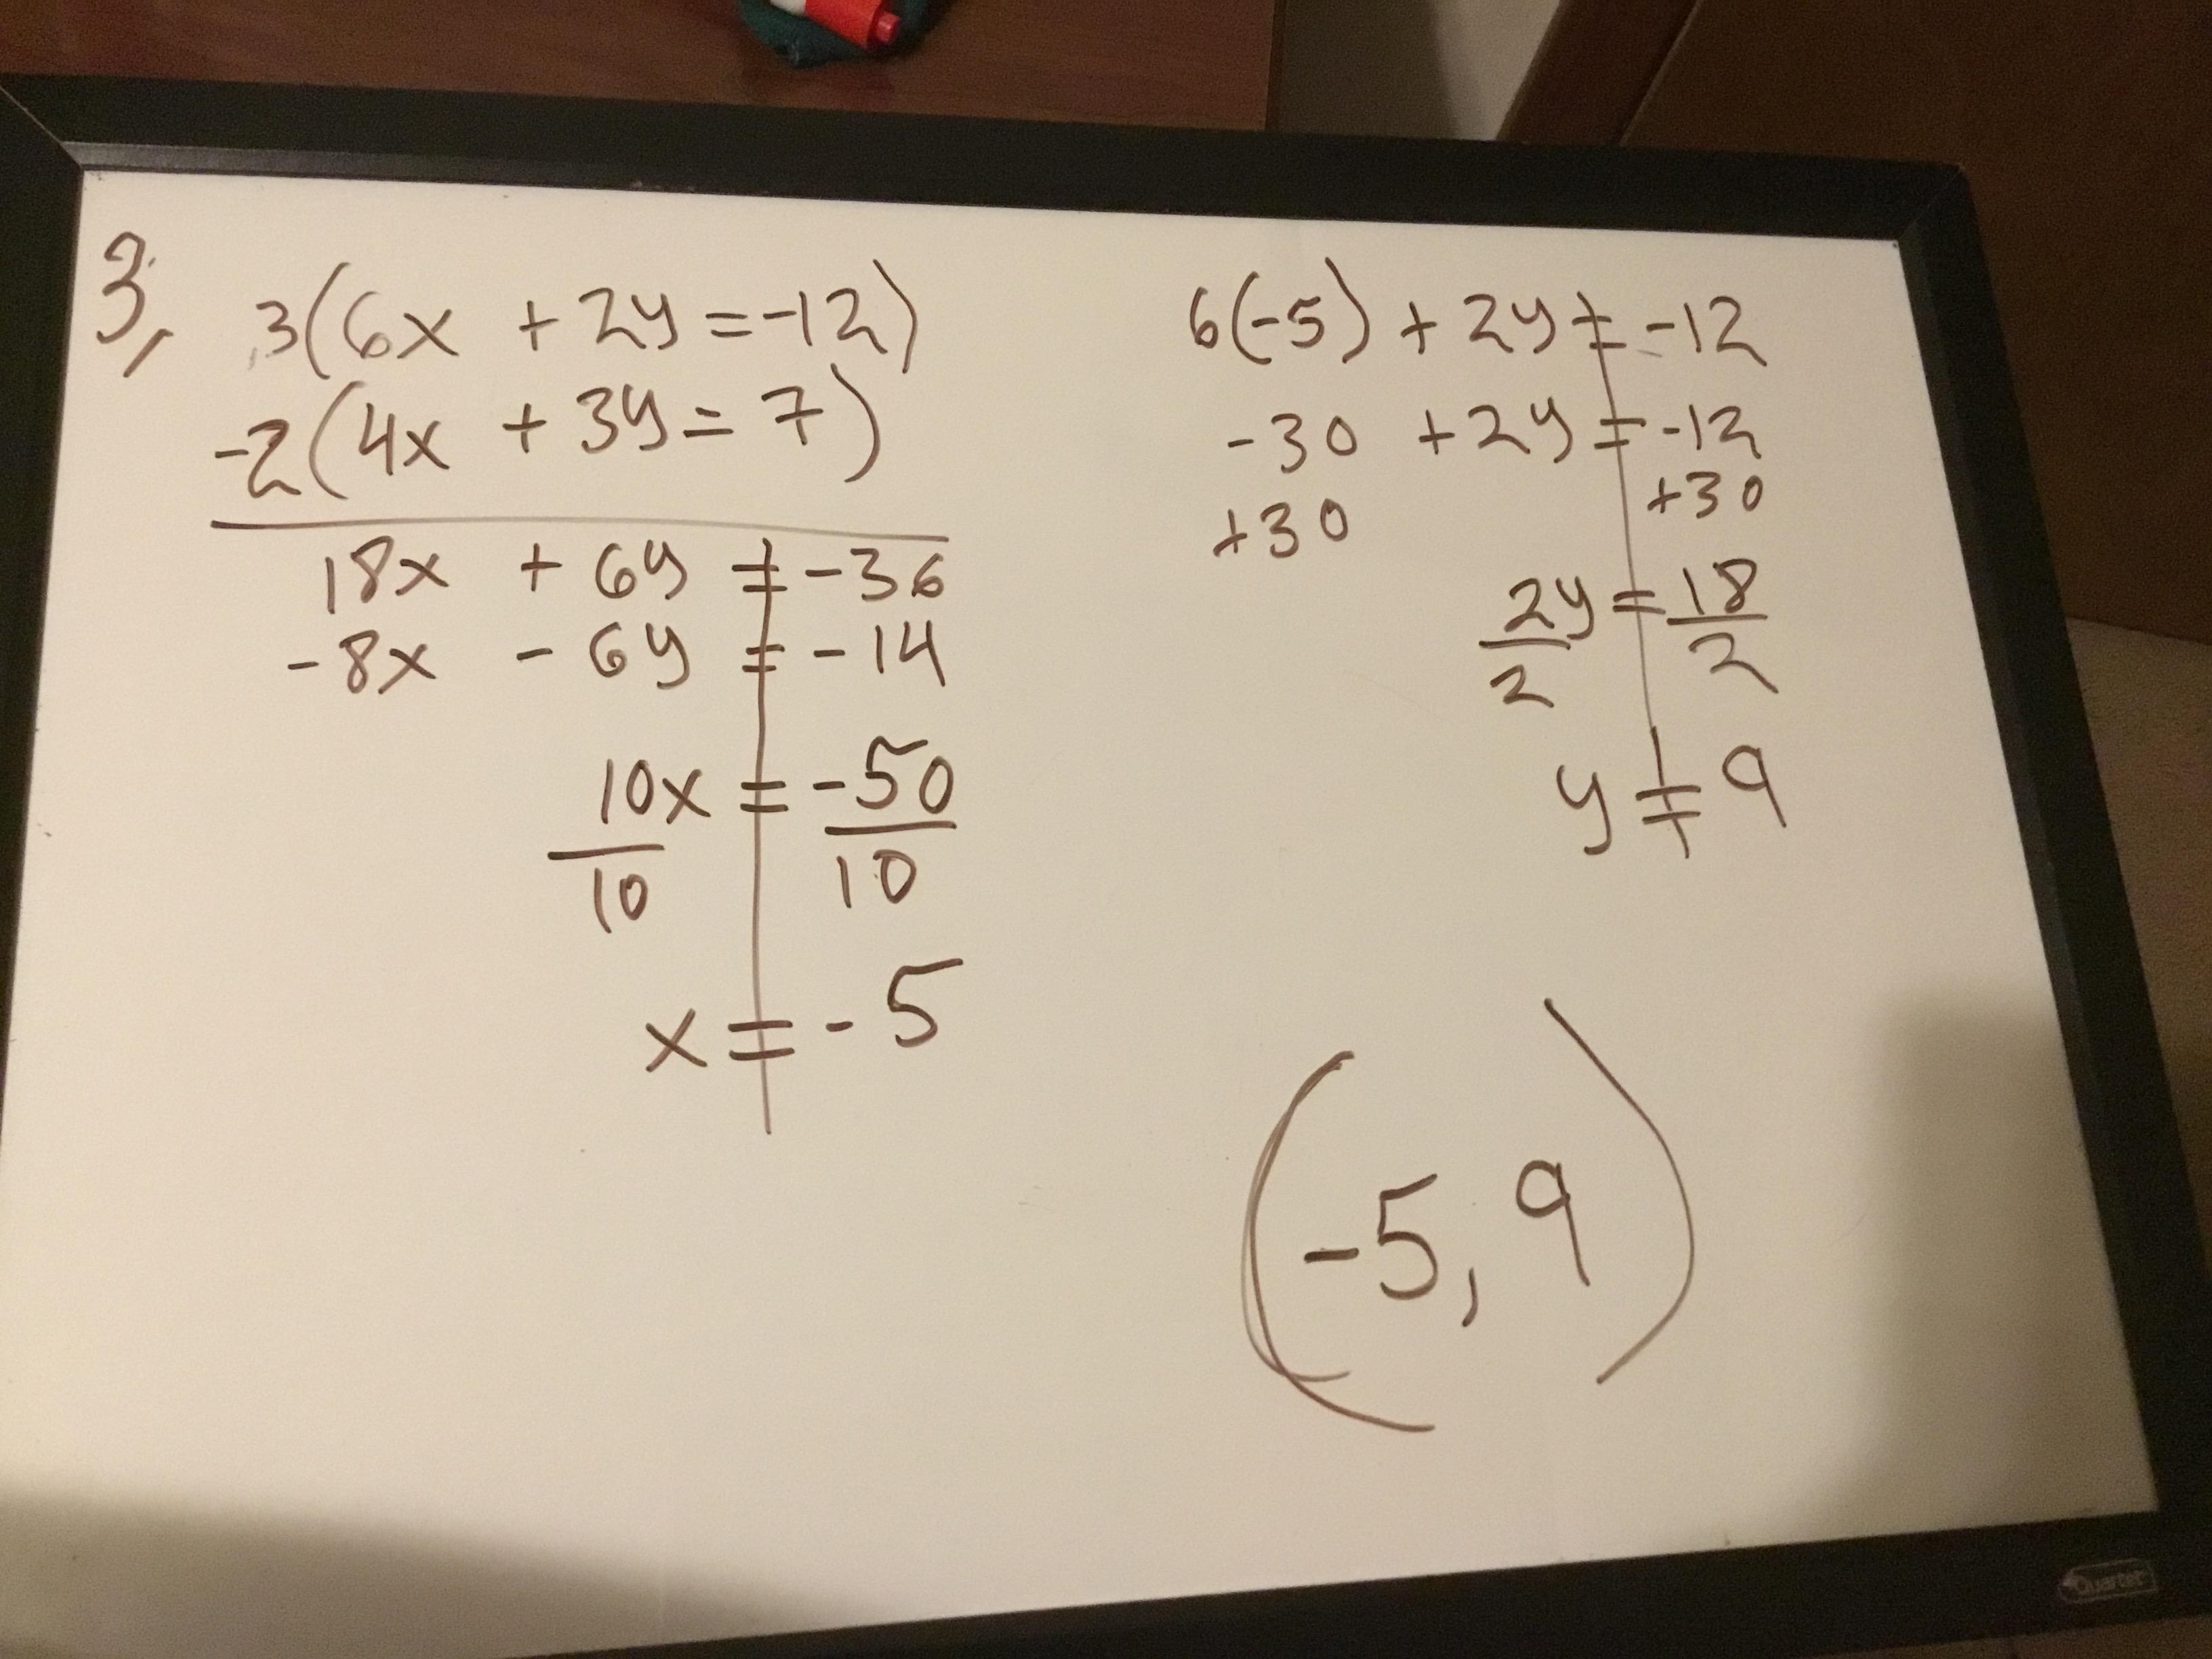 3,
3(6x + 2y = -12)
-2(4x + 3y = 7)
18x + 6y = -36
-8x - 6y = -14
10x = -50
10 10
x = -5
6(-5) + 2y = -12
-30 + 2y = -12
+30 +30
2y = 18
2 2
y = 9
(-5, 9)
Quartet